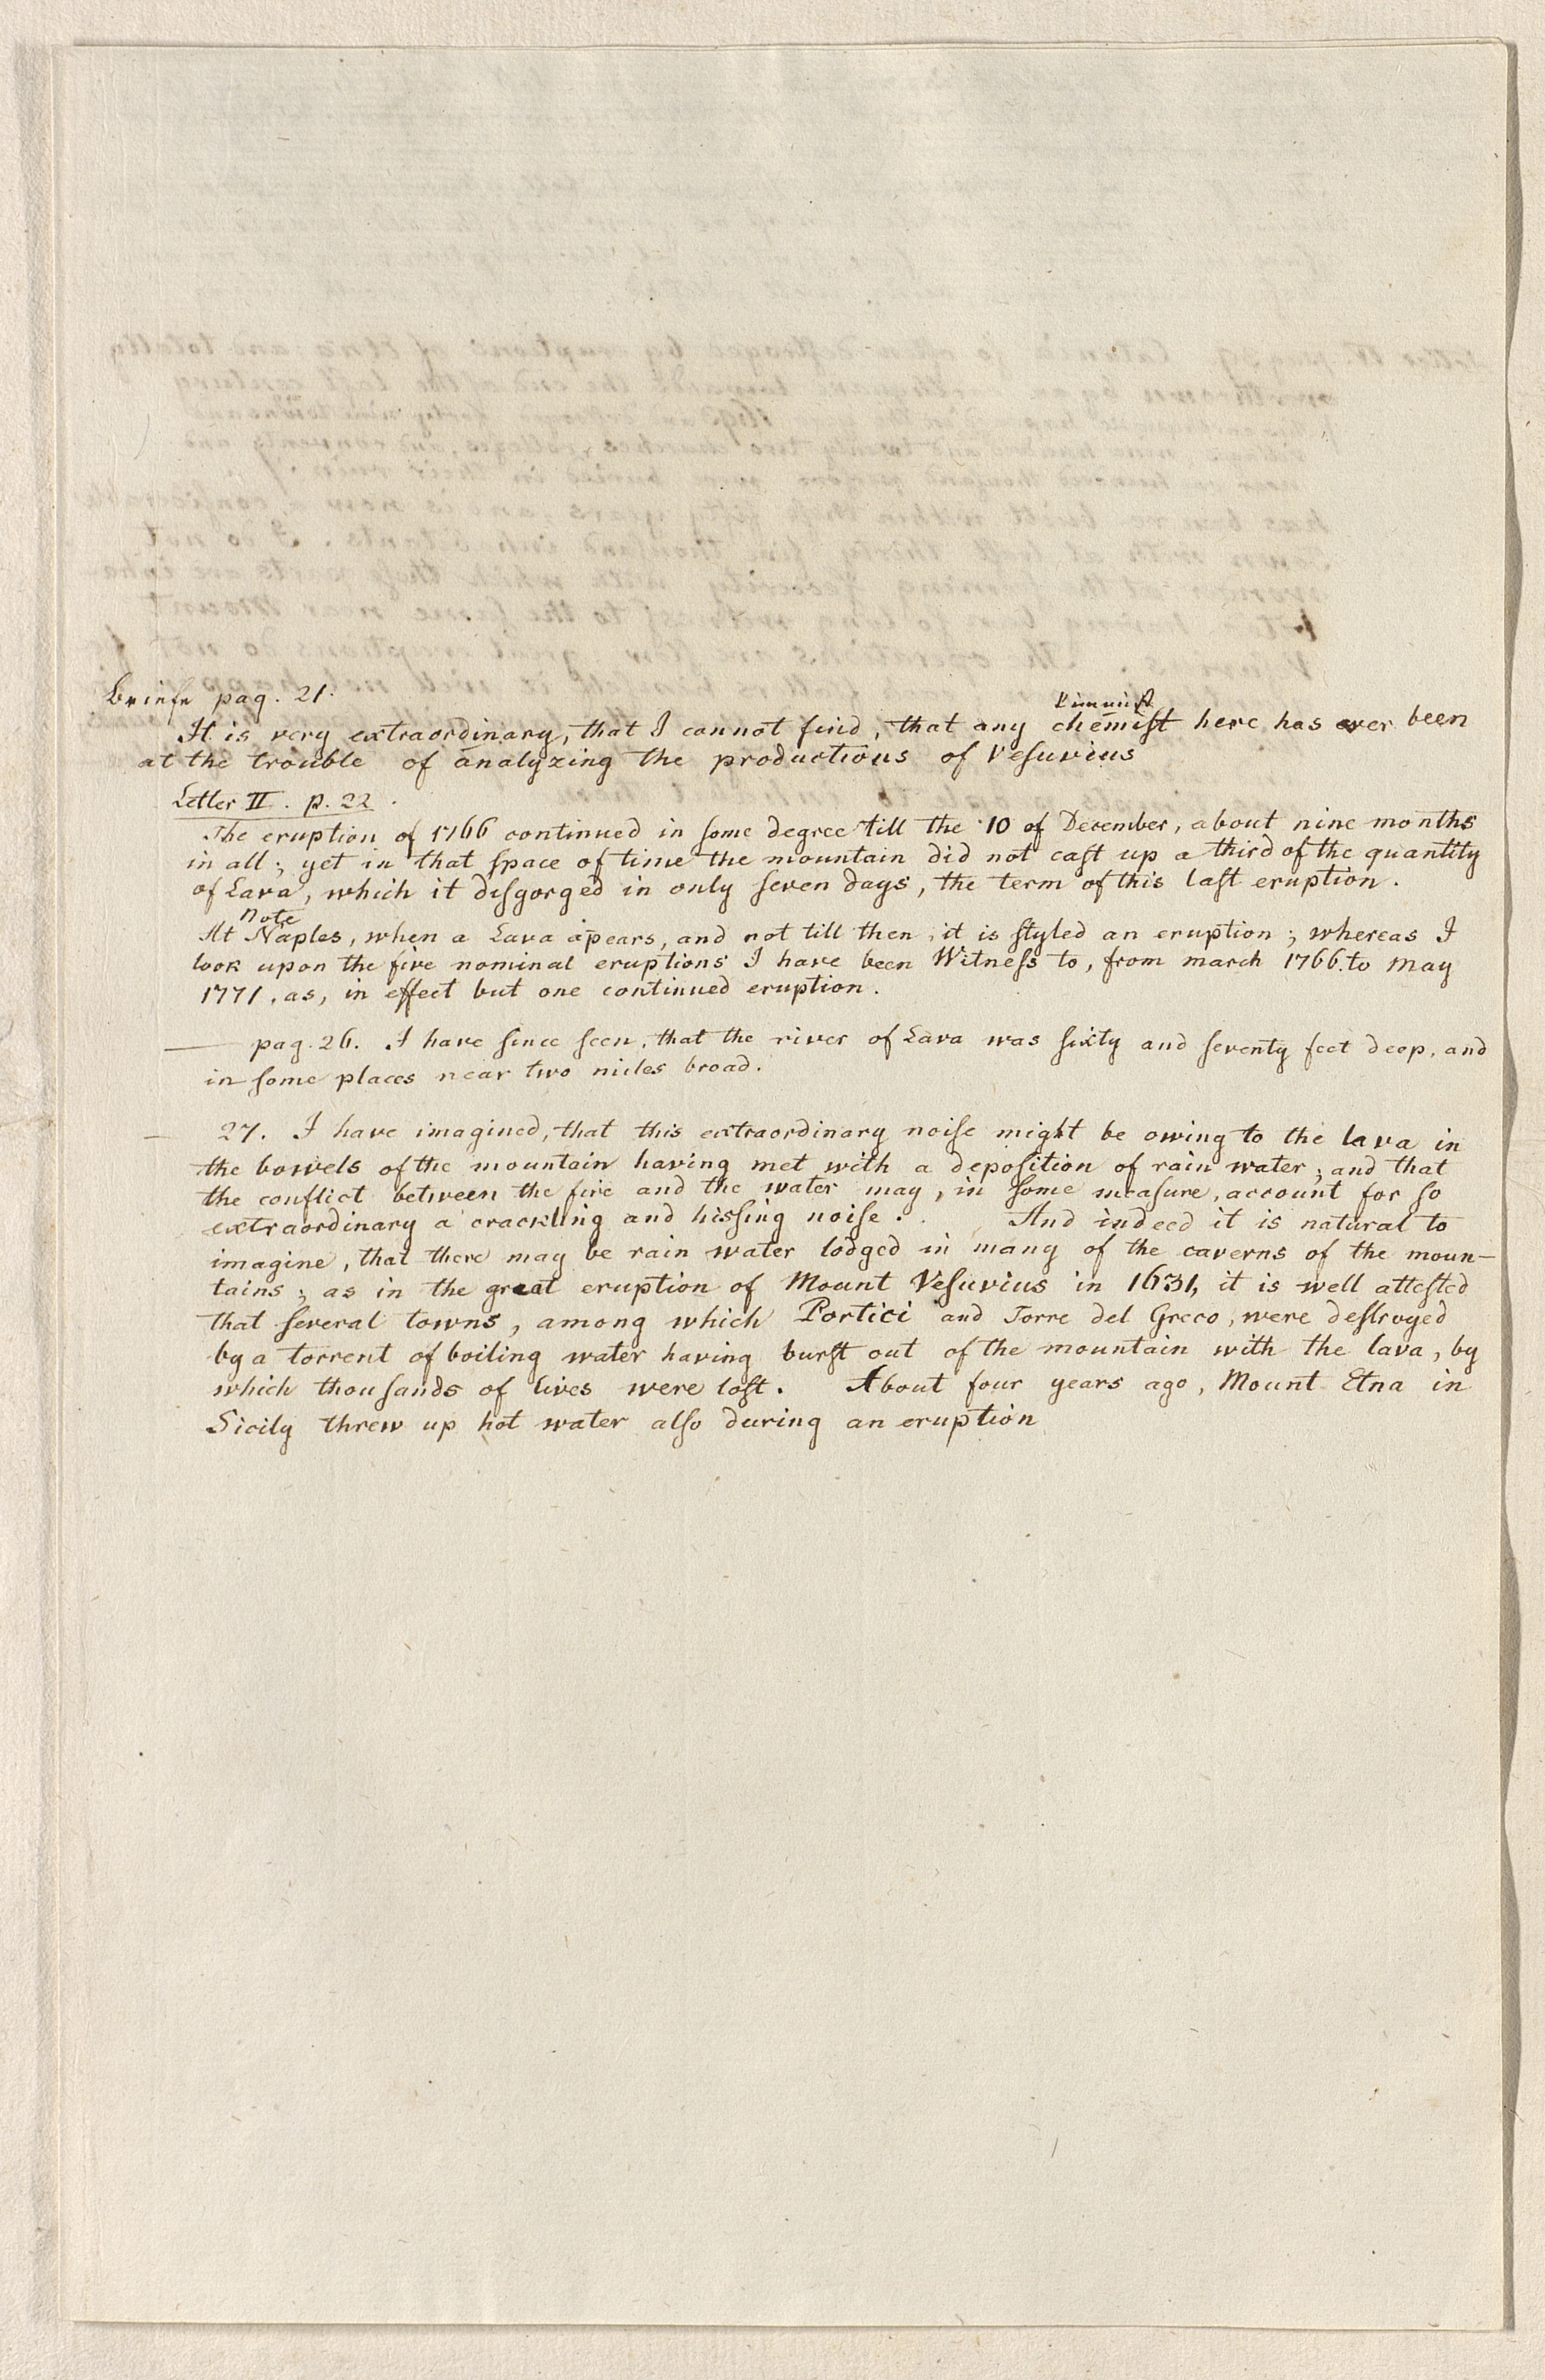 Briefe pag. 21.
It is very extraordinary, that I cannot find, that any chemist here has ever been
at the trouble of analyzing the productions of Vesuvius
Letter II. p. 22.
The eruption of 1766 continued in some degree till the 10 of December, about nine months
in all; yet in that space of time the mountain did not cast up a third of the quantity
of Lava, which it disgorged in only seven days, the term of this last eruption.
note
At Naples, when a Lava apears, and not till then, it is styled an eruption; whereas I
look upon the five nominal eruptions I have been Witness to, from march 1766. to May
1771, as, in effect but one continued eruption.
— pag. 26. I have since seen, that the river of Lava was sixty and seventy feet deep, and
in some places near two miles broad.
— 27. I have imagined, that this extraordinary noise might be owing to the lava in
the bowels of the mountain having met with a deposition of rain water; and that
the conflict between the fire and the water may, in some measure, account for so
extraordinary a crackling and hissing noise. And indeed it is natural to
imagine, that there may be rain water lodged in many of the caverns of the moun-
tains; as in the great eruption of Mount Vesuvius in 1631, it is well attested
that several towns, among which Portici and Torre del Greco, were destroyed
by a torrent of boiling water having burst out of the mountain with the lava, by
which thousands of lives were lost. About four years ago, Mount Etna in
Sicily threw up hot water also during an eruption